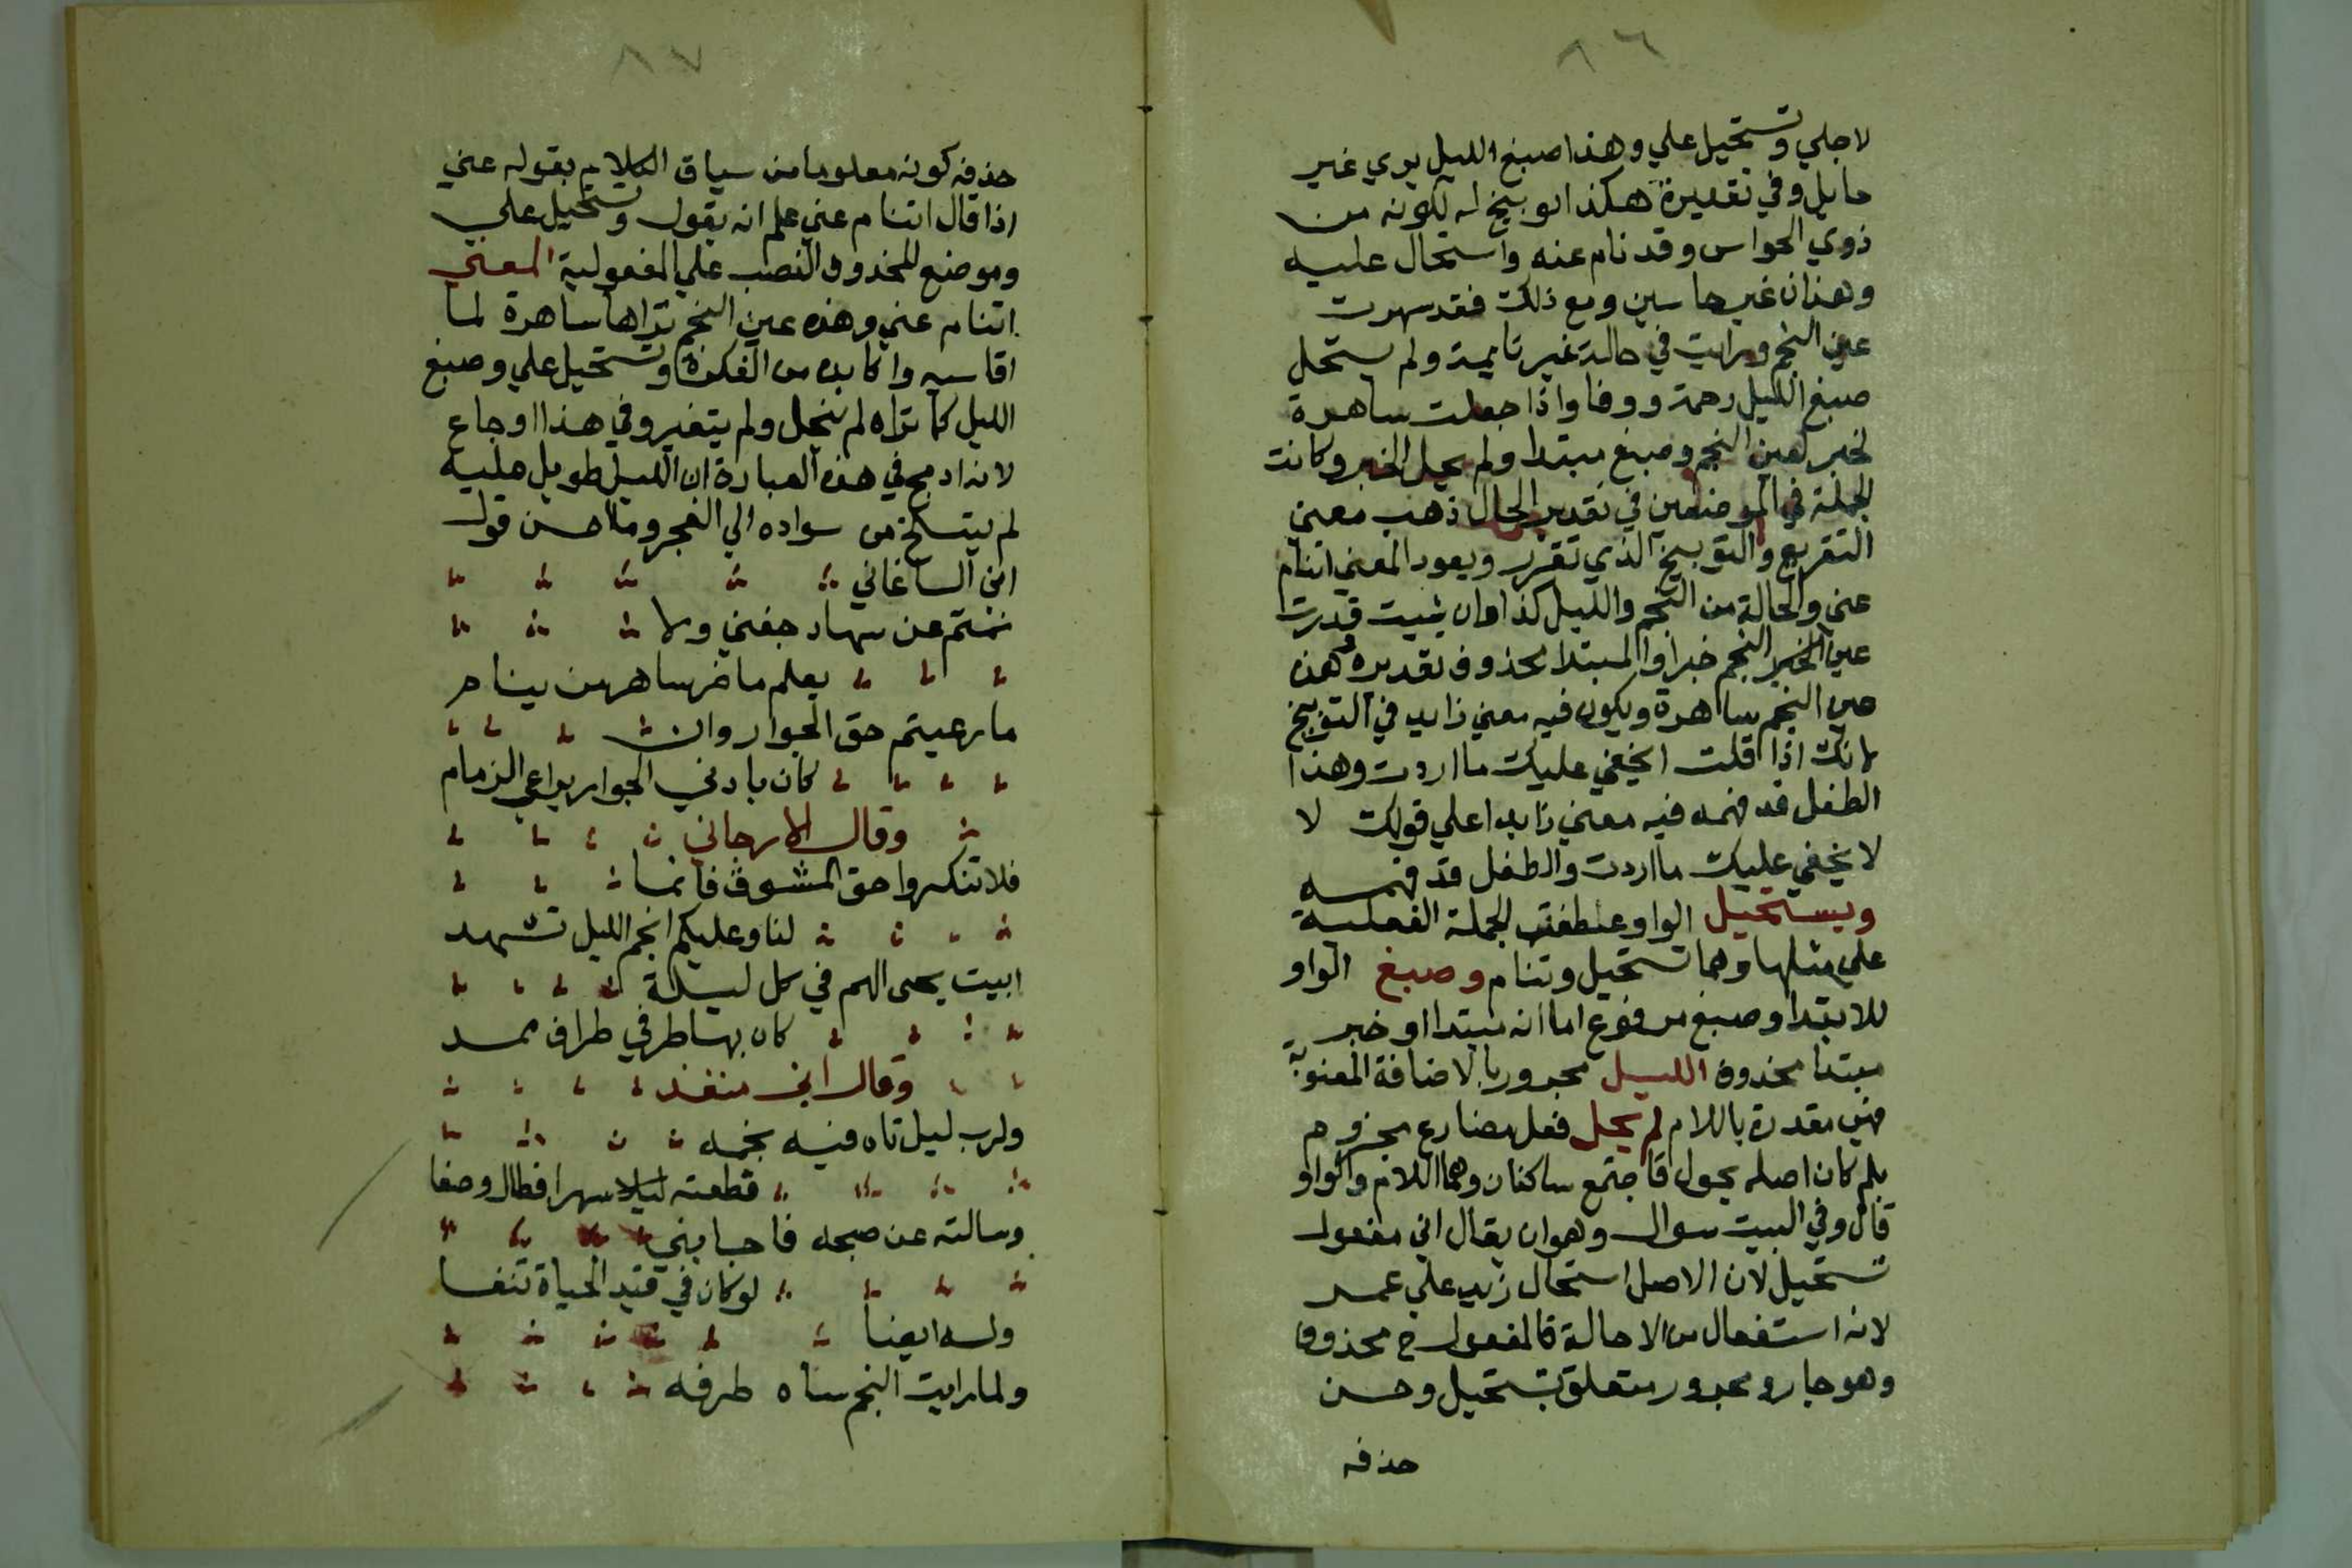 ٨٦
لاجلي وتستحيل علي وهذا صبغ الليل يري غير
حايل وفي تقديرة هكذا توبيخ له لكونه من
ذوي الحواس وقد نام عنه واستحال عليه
وهذان غير حاسين ومع ذلك فقد سهرت
عين النجم ورايت في حالة غير نايمة ولم يستحل
صبغ الليل رحمة ووفا واذا جعلت ساهرة
لخبر لعين النجم وصبغ مبتدا ولم يحل الخبر وكانت
الجملة في الموضعين في تقدير الحال ذهب معني
التقريع والتوبيخ الذي تقرر ويعود المعني اتنام
عني والحالة من النجم والليل كذا وان شيت قدرت
عين الخبر النجم خبرا والمبتدا محذوف تقديره هذه
عين النجم ساهرة ويكون فيه معني زايد في التوبيخ
لانك اذا قلت ايخفي عليك ما اردت وهذا
الطفل قد فهمه فيه معني زايد اعلي قولك لا
لا يخفي عليك ما اردت والطفل قد فهمه
ويستحيل الواو عاطفة الجملة الفعلية
علي مثلها وهما تستحيل وتنام وصبغ الواو
للابتدا وصبغ مرفوع اما انه مبتدا او خبر
مبتدا محذوف الليل مجرور بالاضافة المعنوية
فهي مقدرة باللام لم يحل فعل مضارع مجزوم
بلم كان اصله يحول فاجتمع ساكنان وهما اللام والواو
قال وفي البيت سوال وهو ان يقال اني مفعول
تستحيل لان الاصل استحال زيد علي عمر
لانه استفعال من الاحالة فالمفعول ح محذوف
وهو جار ومجرور متعلق بتستحيل وحسن
حذفه
٨٧
حذفه كونه معلوما من سياق الكلام بقوله عني
اذا قال اتنام عني علم انه يقول وتستحيل علي
وموضع المحذوف النصب علي المفعولية المعني
اتنام عني وهذه عين النجم تراها ساهرة لما
اقاسيه واكابده من الفكرة وتستحيل علي وصبغ
الليل كما تراه لم ينحل ولم يتغير وفي هذا اوجاع
لانه ادمج في هذه العبارة ان الليل طويل عليه
لم ينسلخ من سواده الي الفجر وما احسن قول
ابن الساعاتي
نمتم عن سهاد جفني ولا
يعلم ما مر ساهر من ينام
ما رعيتم حق الجوار وان
كان بادني الجوار يراعي الزمام
وقال الارجاني
فلا تنكروا حق المشوق فانما
لنا وعليكم انجم الليل تشهد
ابيت يحي الهم في كل ليلة
كان بها طرفي طراف ممد
وقال ابن منقذ
ولرب ليل تاه فيه نجمه
قطعته ليلا سهرا فطال وصفا
وسالته عن صبحه فاجابني
لو كان في قيد الحياة تنفسا
وله ايضا
ولما رايت النجم ساه طرفه